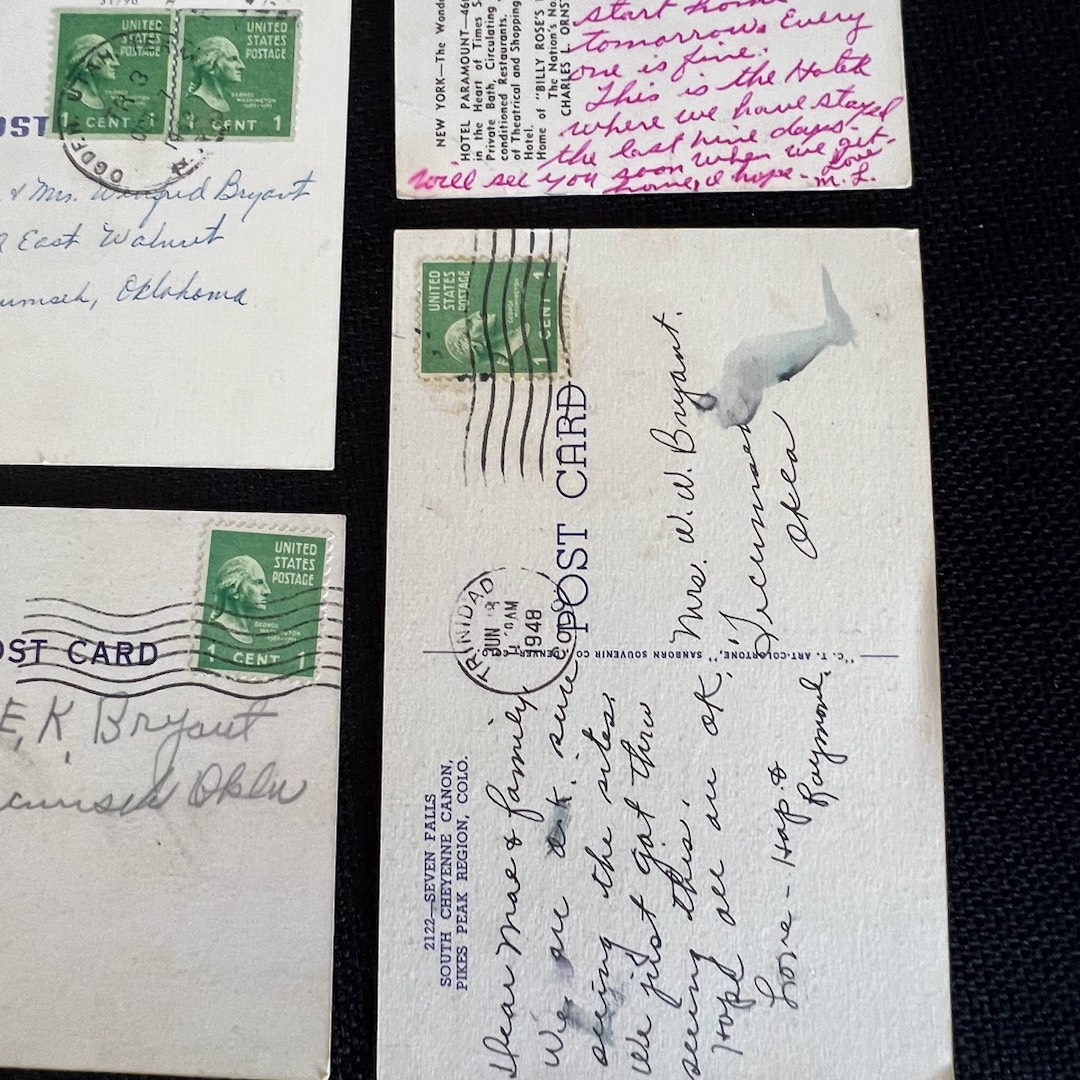 UNITED
STATES
POSTAGE
GEORGE
WASHINGTON
1 CENT 1
UNITED
STATES
POSTAGE
GEORGE
WASHINGTON
1 CENT 1
OGDEN UTAH
OST
& Mrs. Winfred Bryant
East Walnut
umseh, Oklahoma
NEW YORK—The Wonde
HOTEL PARAMOUNT—46t
in the Heart of Times S
Private Bath, Circulating
conditioned Restaurants.
of Theatrical and Shopping
Hotel.
Home of "BILLY ROSE'S
The Nation's No.
CHARLES L. ORNST
start home
tomorrow. Every
one is fine.
This is the Hotel
where we have stayed
the last nine days.
Will see you soon when we get
home, I hope - Love
M. L.
OST CARD
UNITED
STATES
POSTAGE
GEORGE
WASHINGTON
1 CENT 1
E. K. Bryant
cumseh Okla
UNITED
STATES
POSTAGE
GEORGE
WASHINGTON
1 CENT 1
POST CARD
TRINIDAD
JUN
AM
1948
COLO
2122—SEVEN FALLS
SOUTH CHEYENNE CANON,
PIKES PEAK REGION, COLO.
Dear Mae & family,
We are sure
seeing the sites.
We just got threw
seeing this.
Hope all are OK,
Love - Hap &
Raymond.
"C. T. ART-COLORTONE," SANBORN SOUVENIR CO., DENVER
Mrs. W. W. Bryant.
Tecumseh
Okla